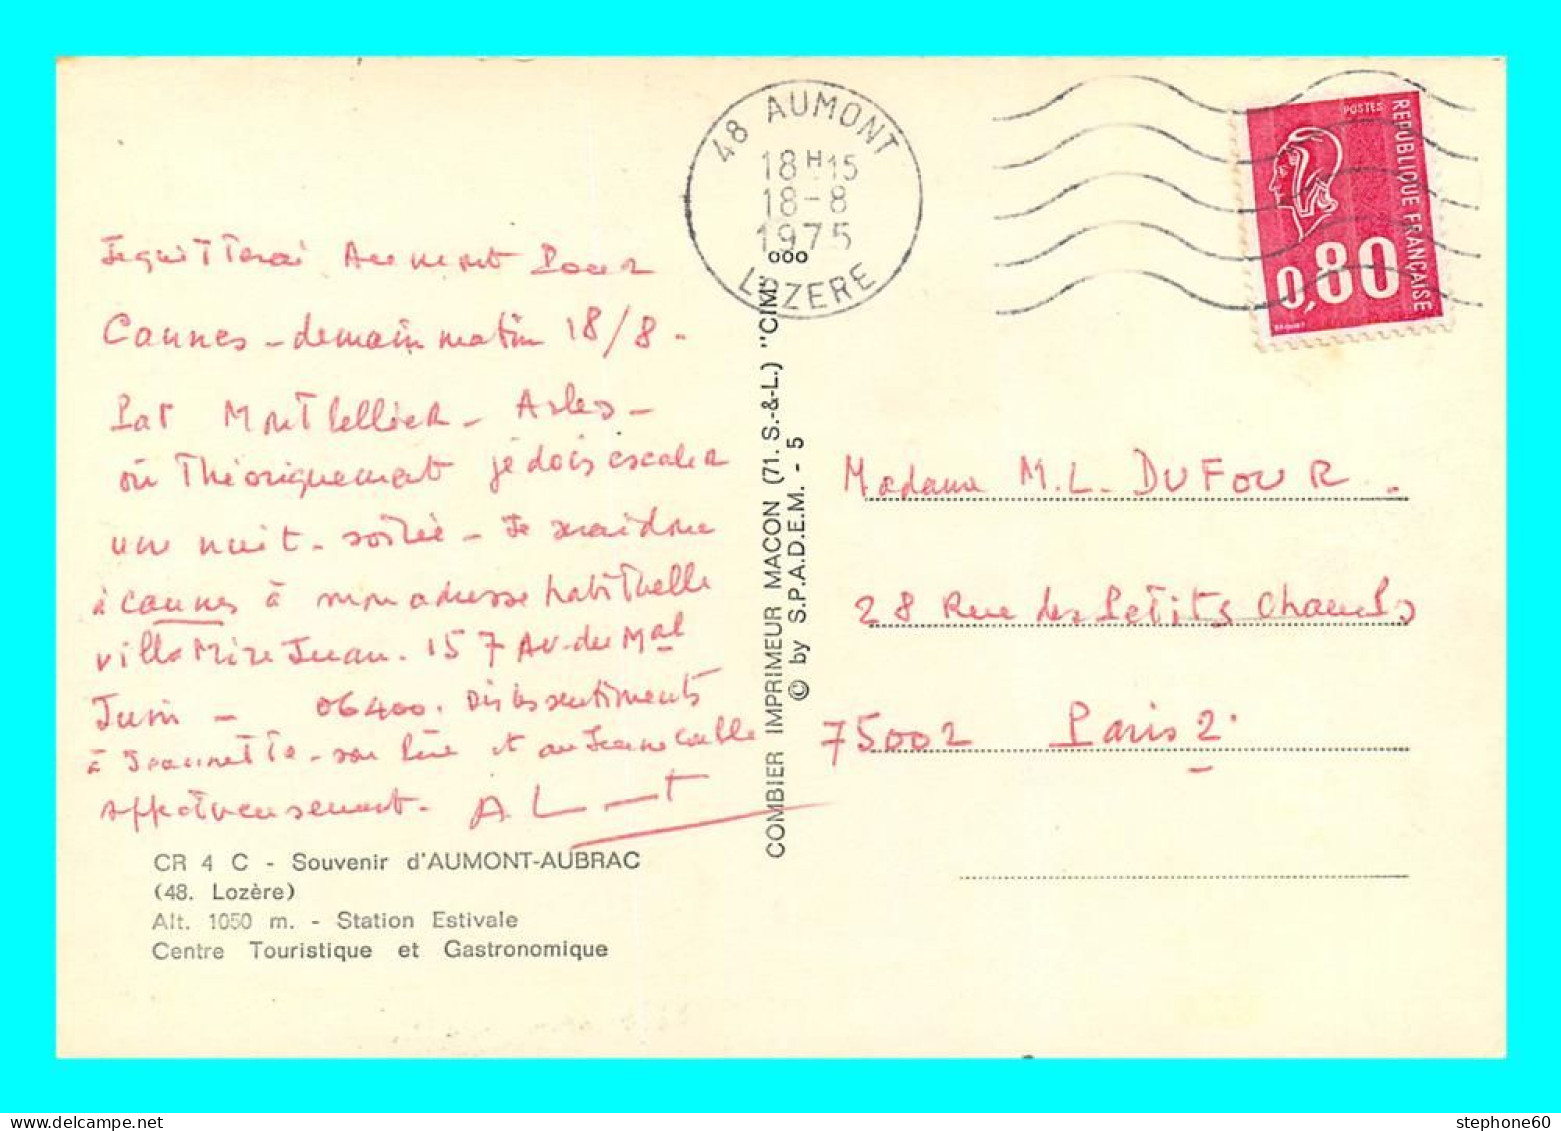 48 AUMONT
18H15
18-8
1975
LOZERE
POSTES
REPUBLIQUE FRANÇAISE
0,80
Je quitterai Aumont Pour
Cannes - demain matin 18/8 -
Par Montpellier - Arles -
où Théoriquement je dois escaler
une nuit - soirée - Je serai donc
à Cannes à mon adresse habituelle
villa Juan. 157 Av. du Mal
Juin - 06400. Dis les sentiments
à Jeannette - son Père et au Jeune
affectueusement.
Madame M.L. DUFOUR.
28 Rue des Petits Champs
75002 Paris 2.
CR 4 C - Souvenir d'AUMONT-AUBRAC
(48. Lozère)
Alt. 1050 m. - Station Estivale
Centre Touristique et Gastronomique
COMBIER IMPRIMEUR MACON (71. S.-&-L.) "CIM"
© by S.P.A.D.E.M. - 5
stephone60